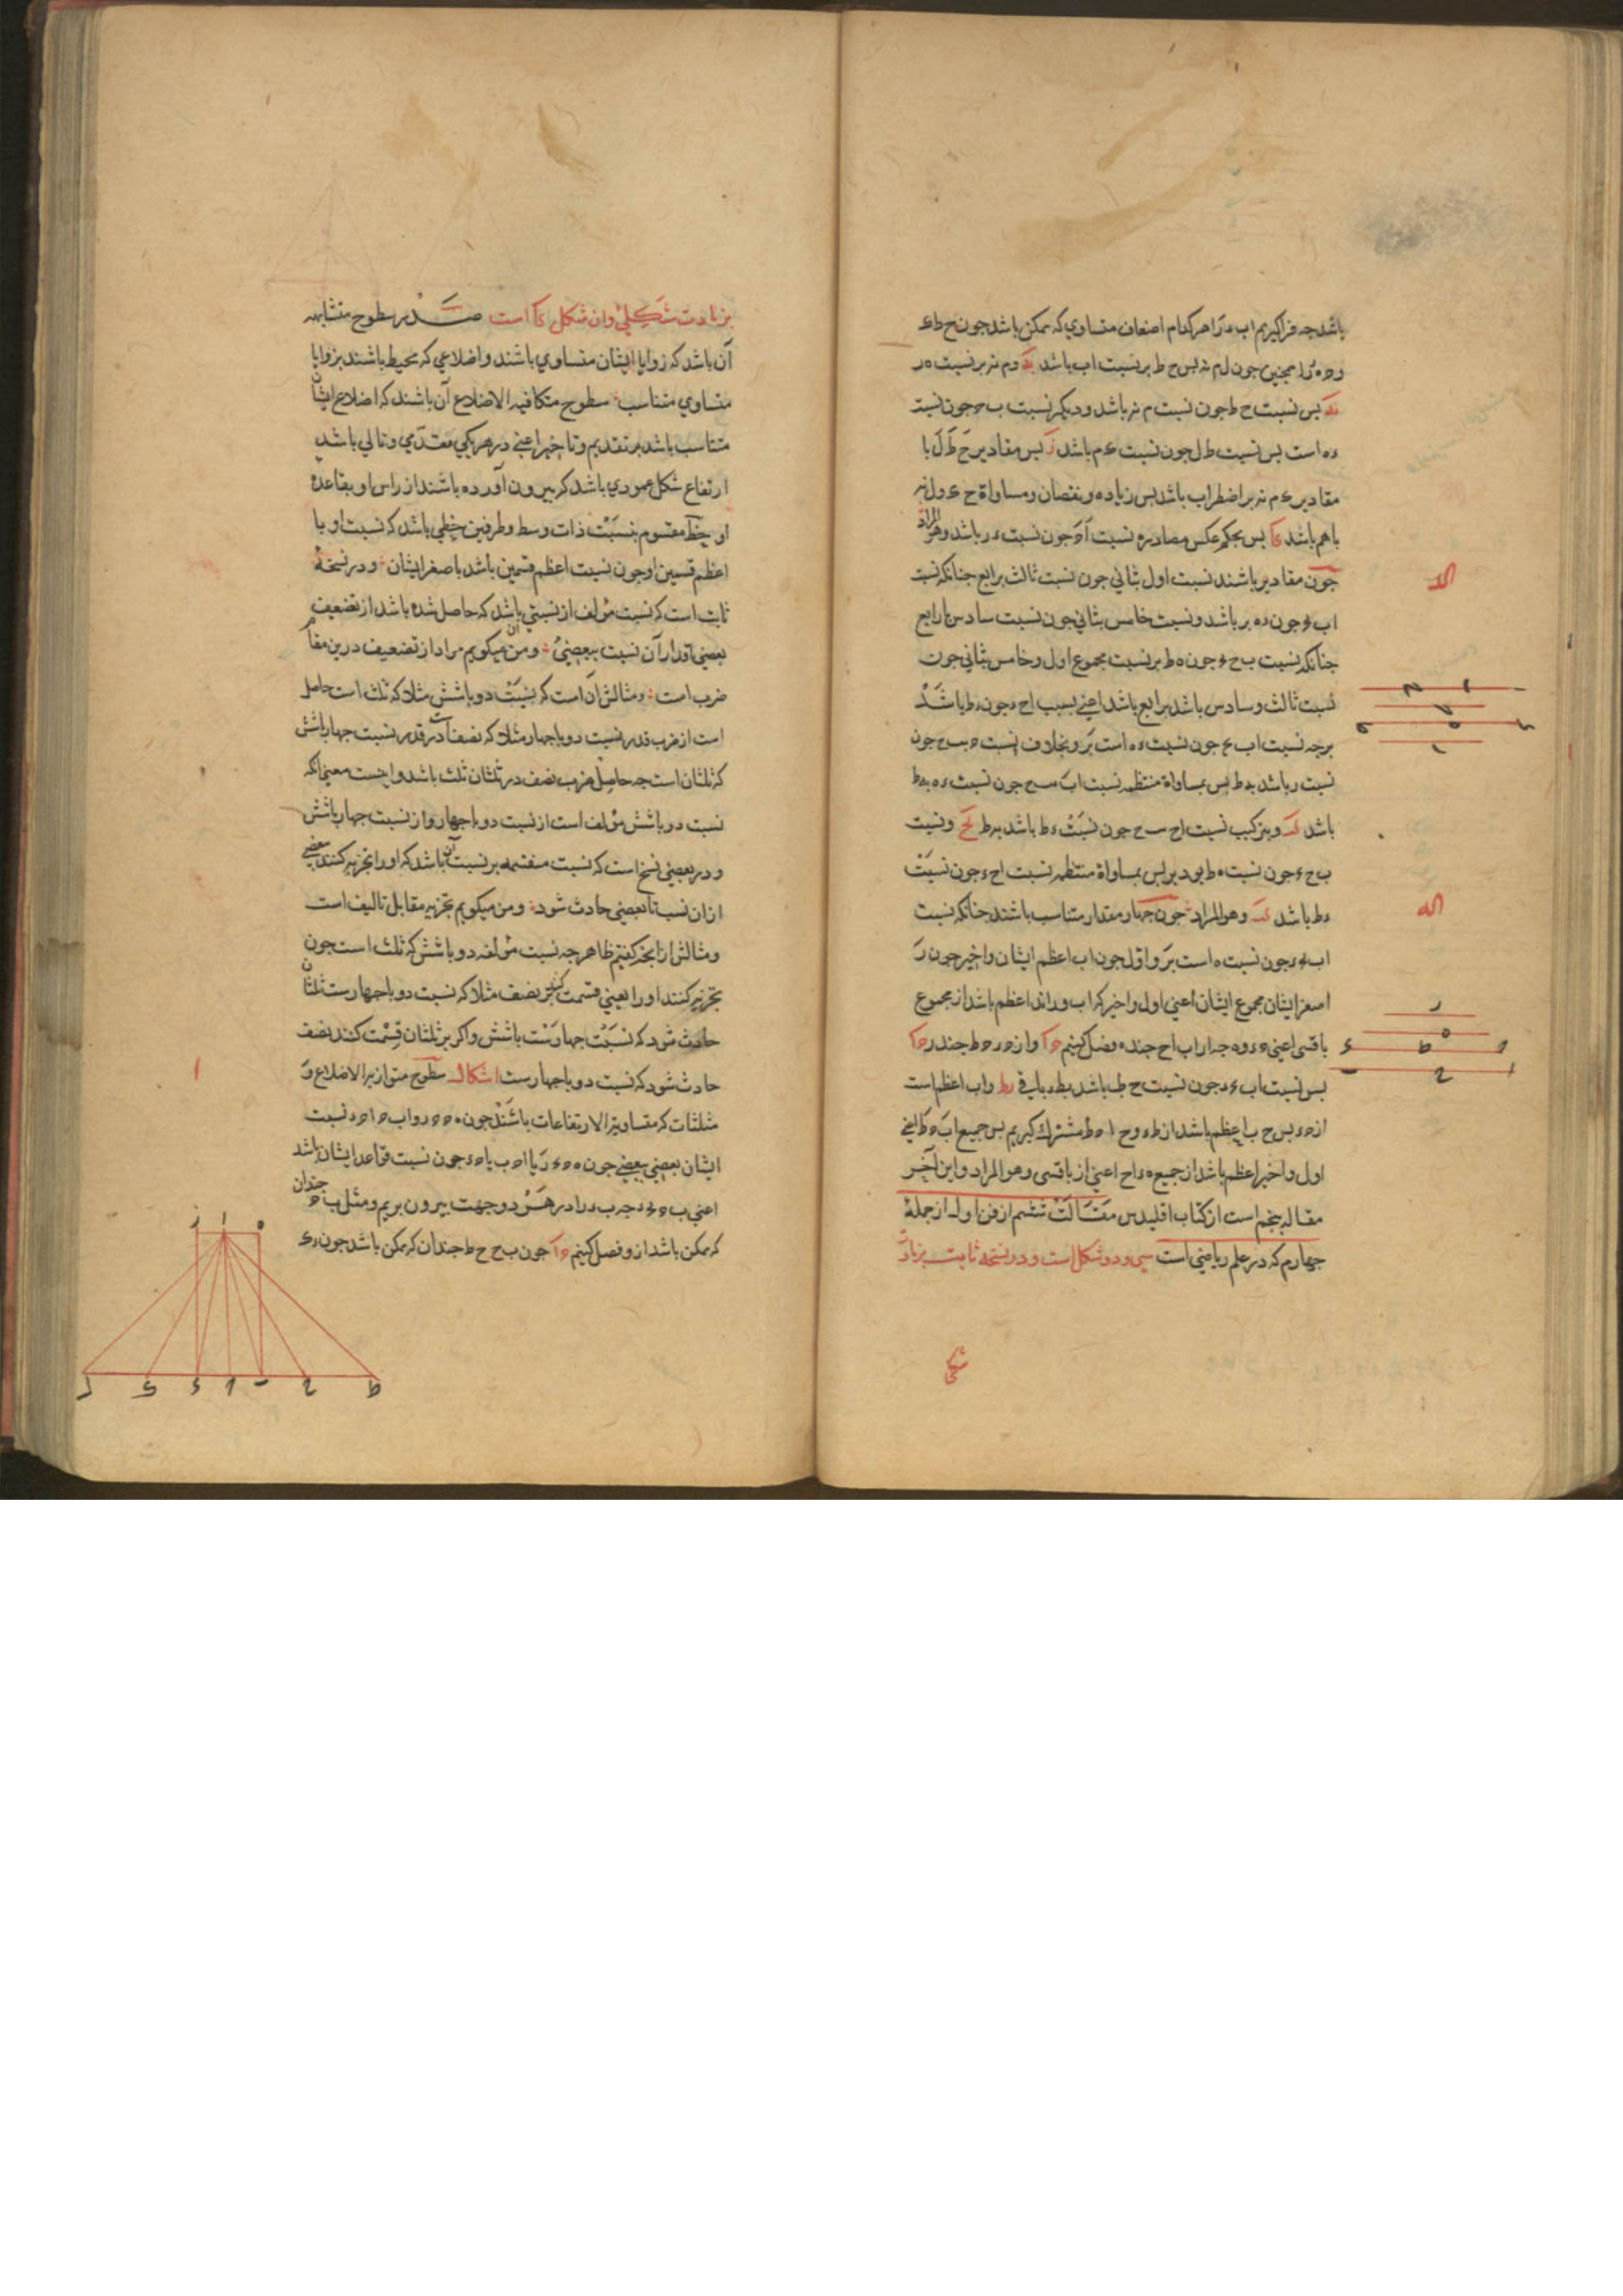 باشد جه فراكيريم اب ه را هركدام اضعاف متساوي كه ممكن باشد جون ح ط ك
و ح ه ز را همجنين جون ل م نه بس ح ط بر نسبت اب باشد يه و م نه بر نسبت ه ر
يه بس نسبت ح ط جون نسبت م نه باشد و ديكر نسبت ب ح جون نسبت
ء ه است بس نسبت ط ل جون نسبت ك م باشد بس مقادير ح ط ل با
مقادير ك م نه بر اضطراب باشد بس زياده و نقصان و مساواة ح ك و ل نه
باهم باشد كا بس بحكم عكس مصادره نسبت اح جون نسبت ء ر باشد وهو المراد
جون مقادير باشند نسبت اول بثاني جون نسبت ثالث برابع جنانكه نسبت
كد
اب ح جون ء ه بر باشد و نسبت خامس بثاني جون نسبت سادس با رابع
جنانكه نسبت ب ح ء جون ه ط بر نسبت مجموع اول و خامس بثاني جون
نسبت ثالث و سادس باشد برابع باشد اعني نسبت اح جون ء ط با شد
برجه نسبت اب ح جون نسبت ء ه است بر و بخلاف نسبت ح ب ح جون
نسبت ر باشد به ط بس بمساواة منتظمه نسبت اب ب ح جون نسبت ء ه به ط
باشد كب و بتركيب نسبت اح ب ح جون نسبت ء ط باشد به ط يح و نسبت
ب ح ء جون نسبت ه ط بود بر بس بمساواة منتظمه نسبت اح ء جون نسبت
ء ط باشد كب وهو المراد جون جهار مقدار متناسب باشند جنانكه نسبت
كه
اب ح ء جون نسبت ه است بر و اول جون اب اعظم ايشان و اخير جون ر
اصغر ايشان مجموع ايشان اعني اول و اخير كه اب و راند اعظم باشد از مجموع
باقسى اعني ح ء و ه جه از اب اح جند ه فصل كنيم ح ا و از ح ء ح ط جند ر ح ا
بس نسبت اب ح ء جون نسبت ح ط باشد بط ء باقي يط و اب اعظم است
از ح ء بس ح ب اعظم باشد از ط ء و ح ا ح ط مشترك كيريم بس جميع اب ح ط اعني
اول و اخير اعظم باشد از جميع ح ء اح اعني از باقسى وهو المراد و اين آخر
مقاله بنجم است از كتاب اقليدس مقالت ششم از فن اول از جملۀ
جهارم كه در علم رياضي است سي و دو شكل است و در نسخه ثابت بزيادت
شكلي
بزيادت شكلي و ان شكل كا است صدر سطوح متشابهه
آن باشد كه زوايا ايشان متساوي باشند و اضلاعي كه محيط باشند بزوايا
متساوي متناسب سطوح متكافيه الاضلاع آن باشند كه اضلاع ايشان
متناسب باشد بر تقديم و تاخير اعني در هر يكي مقدمي و تالي باشد
ارتفاع شكل عمودي باشد كه بيرون آورده باشند از راس او بقاعده
او خط مقسوم بنسبت ذات وسط و طرفين خطي باشد كه نسبت او با
اعظم قسمين او جون نسبت اعظم قسمين باشد با صغر ايشان و در نسخۀ
ثابت است كه نسبت مؤلف از نسبتي باشد كه حاصل شده باشد از تضعيف
بعضي اقدار آن نسبت ببعضي و من ميكويم مراد از تضعيف درين مقام
ضرب است و مثالش آن است كه نسبت دو باشش مثلا كه ثلث است حاصل
است از ضرب قدر نسبت دو باجهار مثلا كه نصف است در قدر نسبت جهار باشش
كه ثلثان است جه حاصل ضرب نصف در ثلثان ثلث باشد و اينست معني انكه
نسبت دو باشش مؤلف است از نسبت دو باجهار و از نسبت جهار باشش
و در بعضي نسخ است كه نسبت منقسمه بر نسبت آن باشد كه او را تجزيه كنند بعضي
از ان نسب تا بعضي حادث شود و من ميكويم تجزيه مقابل تاليف است
و مثالش از انجه كفتيم ظاهر جه نسبت مؤلفه دو باشش كه ثلث است جون
تجزيه كنند او را يعني قسمت كنند بر نصف مثلا كه نسبت دو باجهارست ثلثان
حادث شود كه نسبت جهارست باشش و اكر بر ثلثان قسمت كنند نصف
حادث شود كه نسبت دو باجهارست اشكال سطوح متوازيه الاضلاع و
ا
مثلثات كه متساوية الارتفاعات باشند جون ه ح ح ر و اب ح ا ح ء نسبت
ايشان بعضي ببعضي جون ه ح ح ر يا اح ب با ح ء جون نسبت قواعد ايشان باشد
اعني ب ح ح ء جه ب ء را در هر دو جهت بيرون بريم و مثل ب ح جندان
كه ممكن باشد از و فصل كنيم ح ا جون ب ح ح ط جندان كه ممكن باشد جون ء ك
ز ا ه
ل ك ء ح ب ح ط